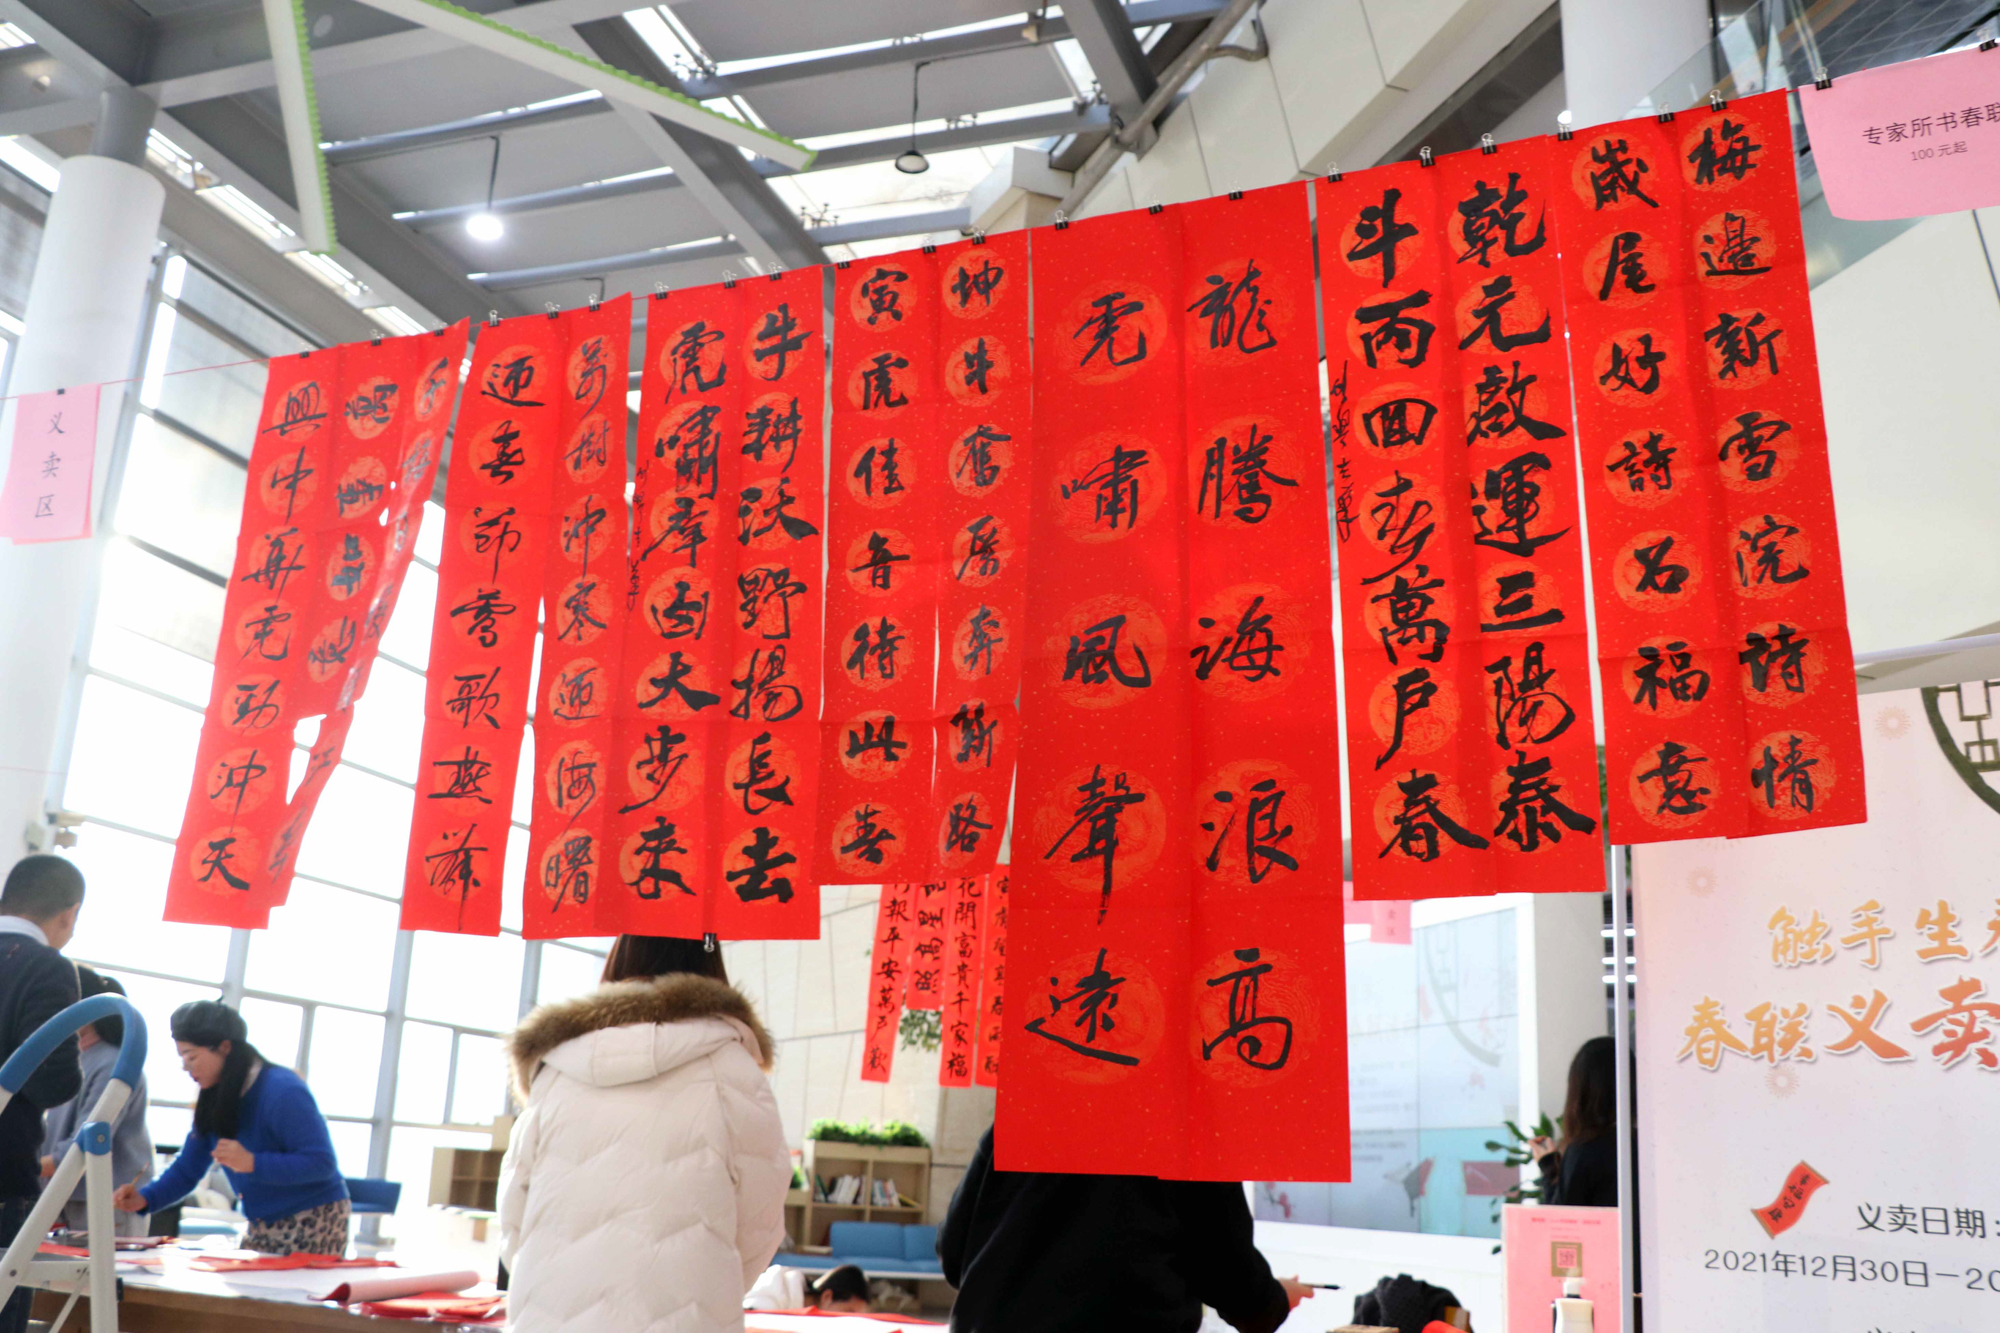 梅邊新雪浣詩情
歲尾好詩名福意
乾元啟運三陽泰
斗丙回寅萬戶春
龍騰海浪高
虎嘯風聲遠
坤牛奮厲奔斯路
寅虎佳音待此春
牛耕沃野揚長去
虎嘯群山大步來
萬樹沖寒迎海曙
迎春節鶯歌燕舞
興中華虎勁沖天
专家所书春联
100元起
义卖区
報平安萬戶歡
花開富貴千家福
触手生
春联义卖
义卖日期：
2021年12月30日－20